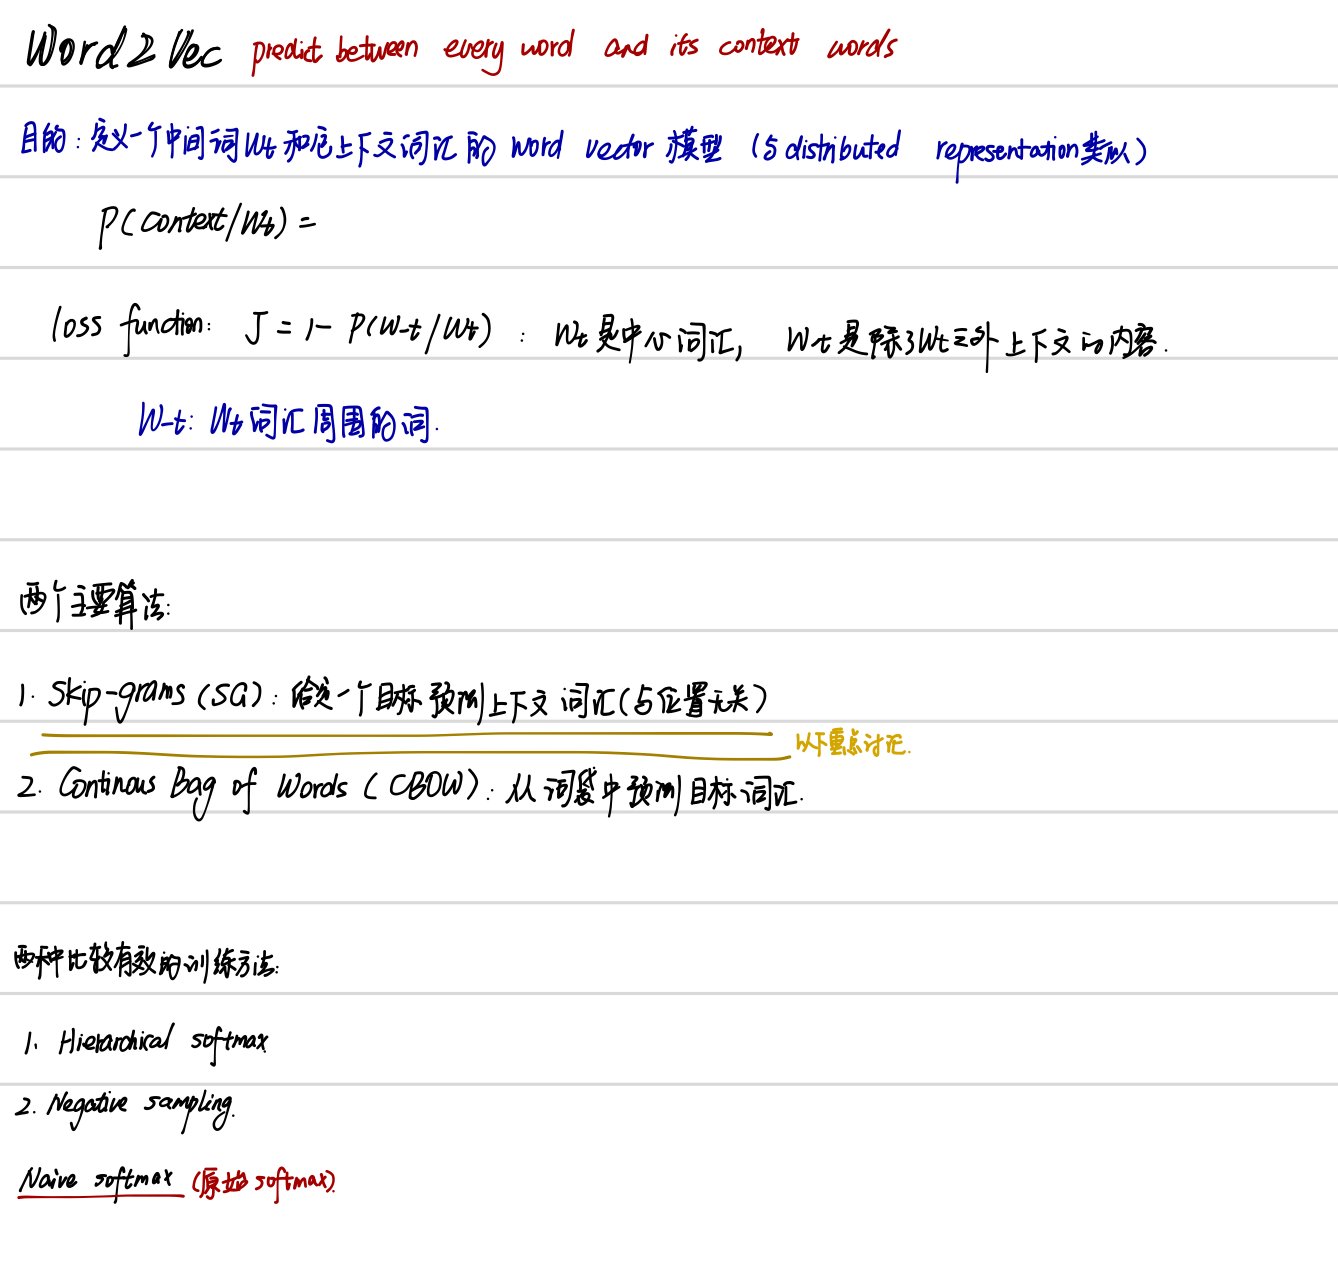 Word2Vec predict between every word and its context words
目的:定义一个中间词Wt和它上下文词汇的 word vector 模型 (与distributed representation类似)
P(context/Wt) =
loss function: J = 1- P(W-t/Wt) : Wt是中心词汇, W-t是除了Wt之外上下文的内容.
W-t: Wt词汇周围的词.
两个主要算法:
1. Skip-grams (SG): 给定一个目标预测上下文词汇(与位置无关)
以下重点讨论.
2. Continous Bag of Words (CBOW): 从词袋中预测目标词汇.
两种比较有效的训练方法:
1. Hierarchical softmax
2. Negative sampling.
Naive softmax (原始softmax).